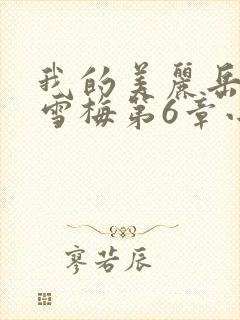 我的美麗岳
雪梅第6章小
寥若辰